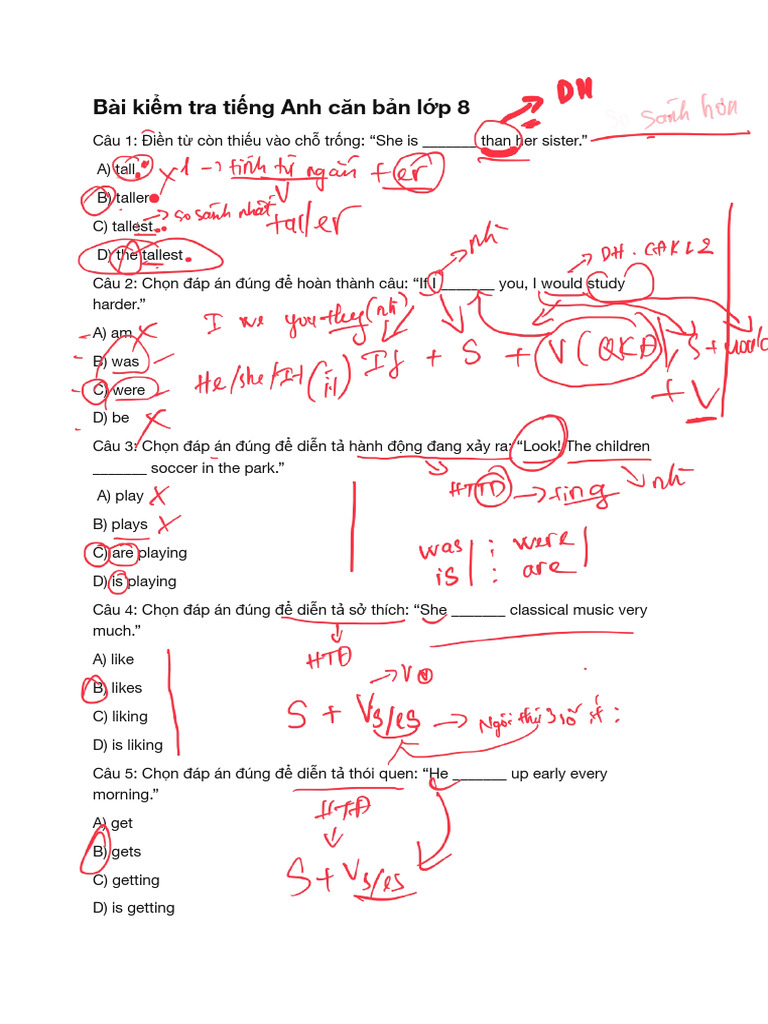 Bài kiểm tra tiếng Anh căn bản lớp 8
DH
so sánh hơn
Câu 1: Điền từ còn thiếu vào chỗ trống: “She is _______ than her sister.”
A) tall
1 → tính từ ngắn + er
B) taller
C) tallest
→ so sánh nhất
taller
D) the tallest
nhi
DH. CĐKL2
Câu 2: Chọn đáp án đúng để hoàn thành câu: “If I _______ you, I would study
harder.”
I we you they (nhi)
A) am
B) was
If + S + V (QKĐ), S + would
+ V
He/she/It (ít)
C) were
D) be
Câu 3: Chọn đáp án đúng để diễn tả hành động đang xảy ra: “Look! The children
_______ soccer in the park.”
HTTD → +ing
nhi
A) play
B) plays
was : were
C) are playing
is : are
D) is playing
Câu 4: Chọn đáp án đúng để diễn tả sở thích: “She _______ classical music very
much.”
HTĐ
A) like
B) likes
→ V
C) liking
S + Vs/es → Ngôi thứ 3 số ít :
D) is liking
Câu 5: Chọn đáp án đúng để diễn tả thói quen: “He _______ up early every
morning.”
HTĐ
A) get
B) gets
C) getting
S + Vs/es
D) is getting